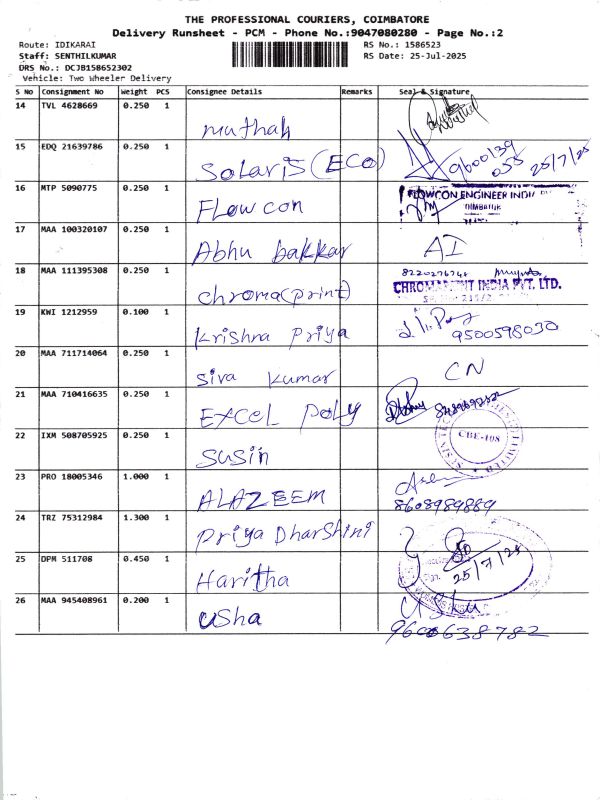 THE PROFESSIONAL COURIERS, COIMBATORE
Delivery Runsheet - PCM - Phone No.:9047080280 - Page No.:2
Route: IDIKARAI RS No.: 1586523
Staff: SENTHILKUMAR RS Date: 25-Jul-2025
DRS No.: DCJB158652302
Vehicle: Two Wheeler Delivery
S No Consignment No Weight PCS Consignee Details Remarks Seal & Signature
14 TVL 4628669 0.250 1
muthah
15 EDQ 21639786 0.250 1
Solaris (ECO) 9600139
055 25/7/25
16 MTP 5090775 0.250 1
Flowcon FLOWCON ENGINEER INDIA
17 MAA 100320107 0.250 1
Abhu bakkar AI
18 MAA 111395308 0.250 1
chroma(print) CHROMAPRINT INDIA PVT. LTD.
19 KWI 1212959 0.100 1
Krishna Priya 9500598030
20 MAA 711714064 0.250 1
Siva Kumar CN
21 MAA 710416635 0.250 1
EXCEL Poly
22 IXM 508705925 0.250 1
Susin CBE-408
23 PRO 18005346 1.000 1
ALAZEEM 8608989889
24 TRZ 75312984 1.300 1
Priya Dharshini
25 DPM 511708 0.450 1
Haritha 25/7/25
26 MAA 945408961 0.200 1
Usha Usha
9600638782